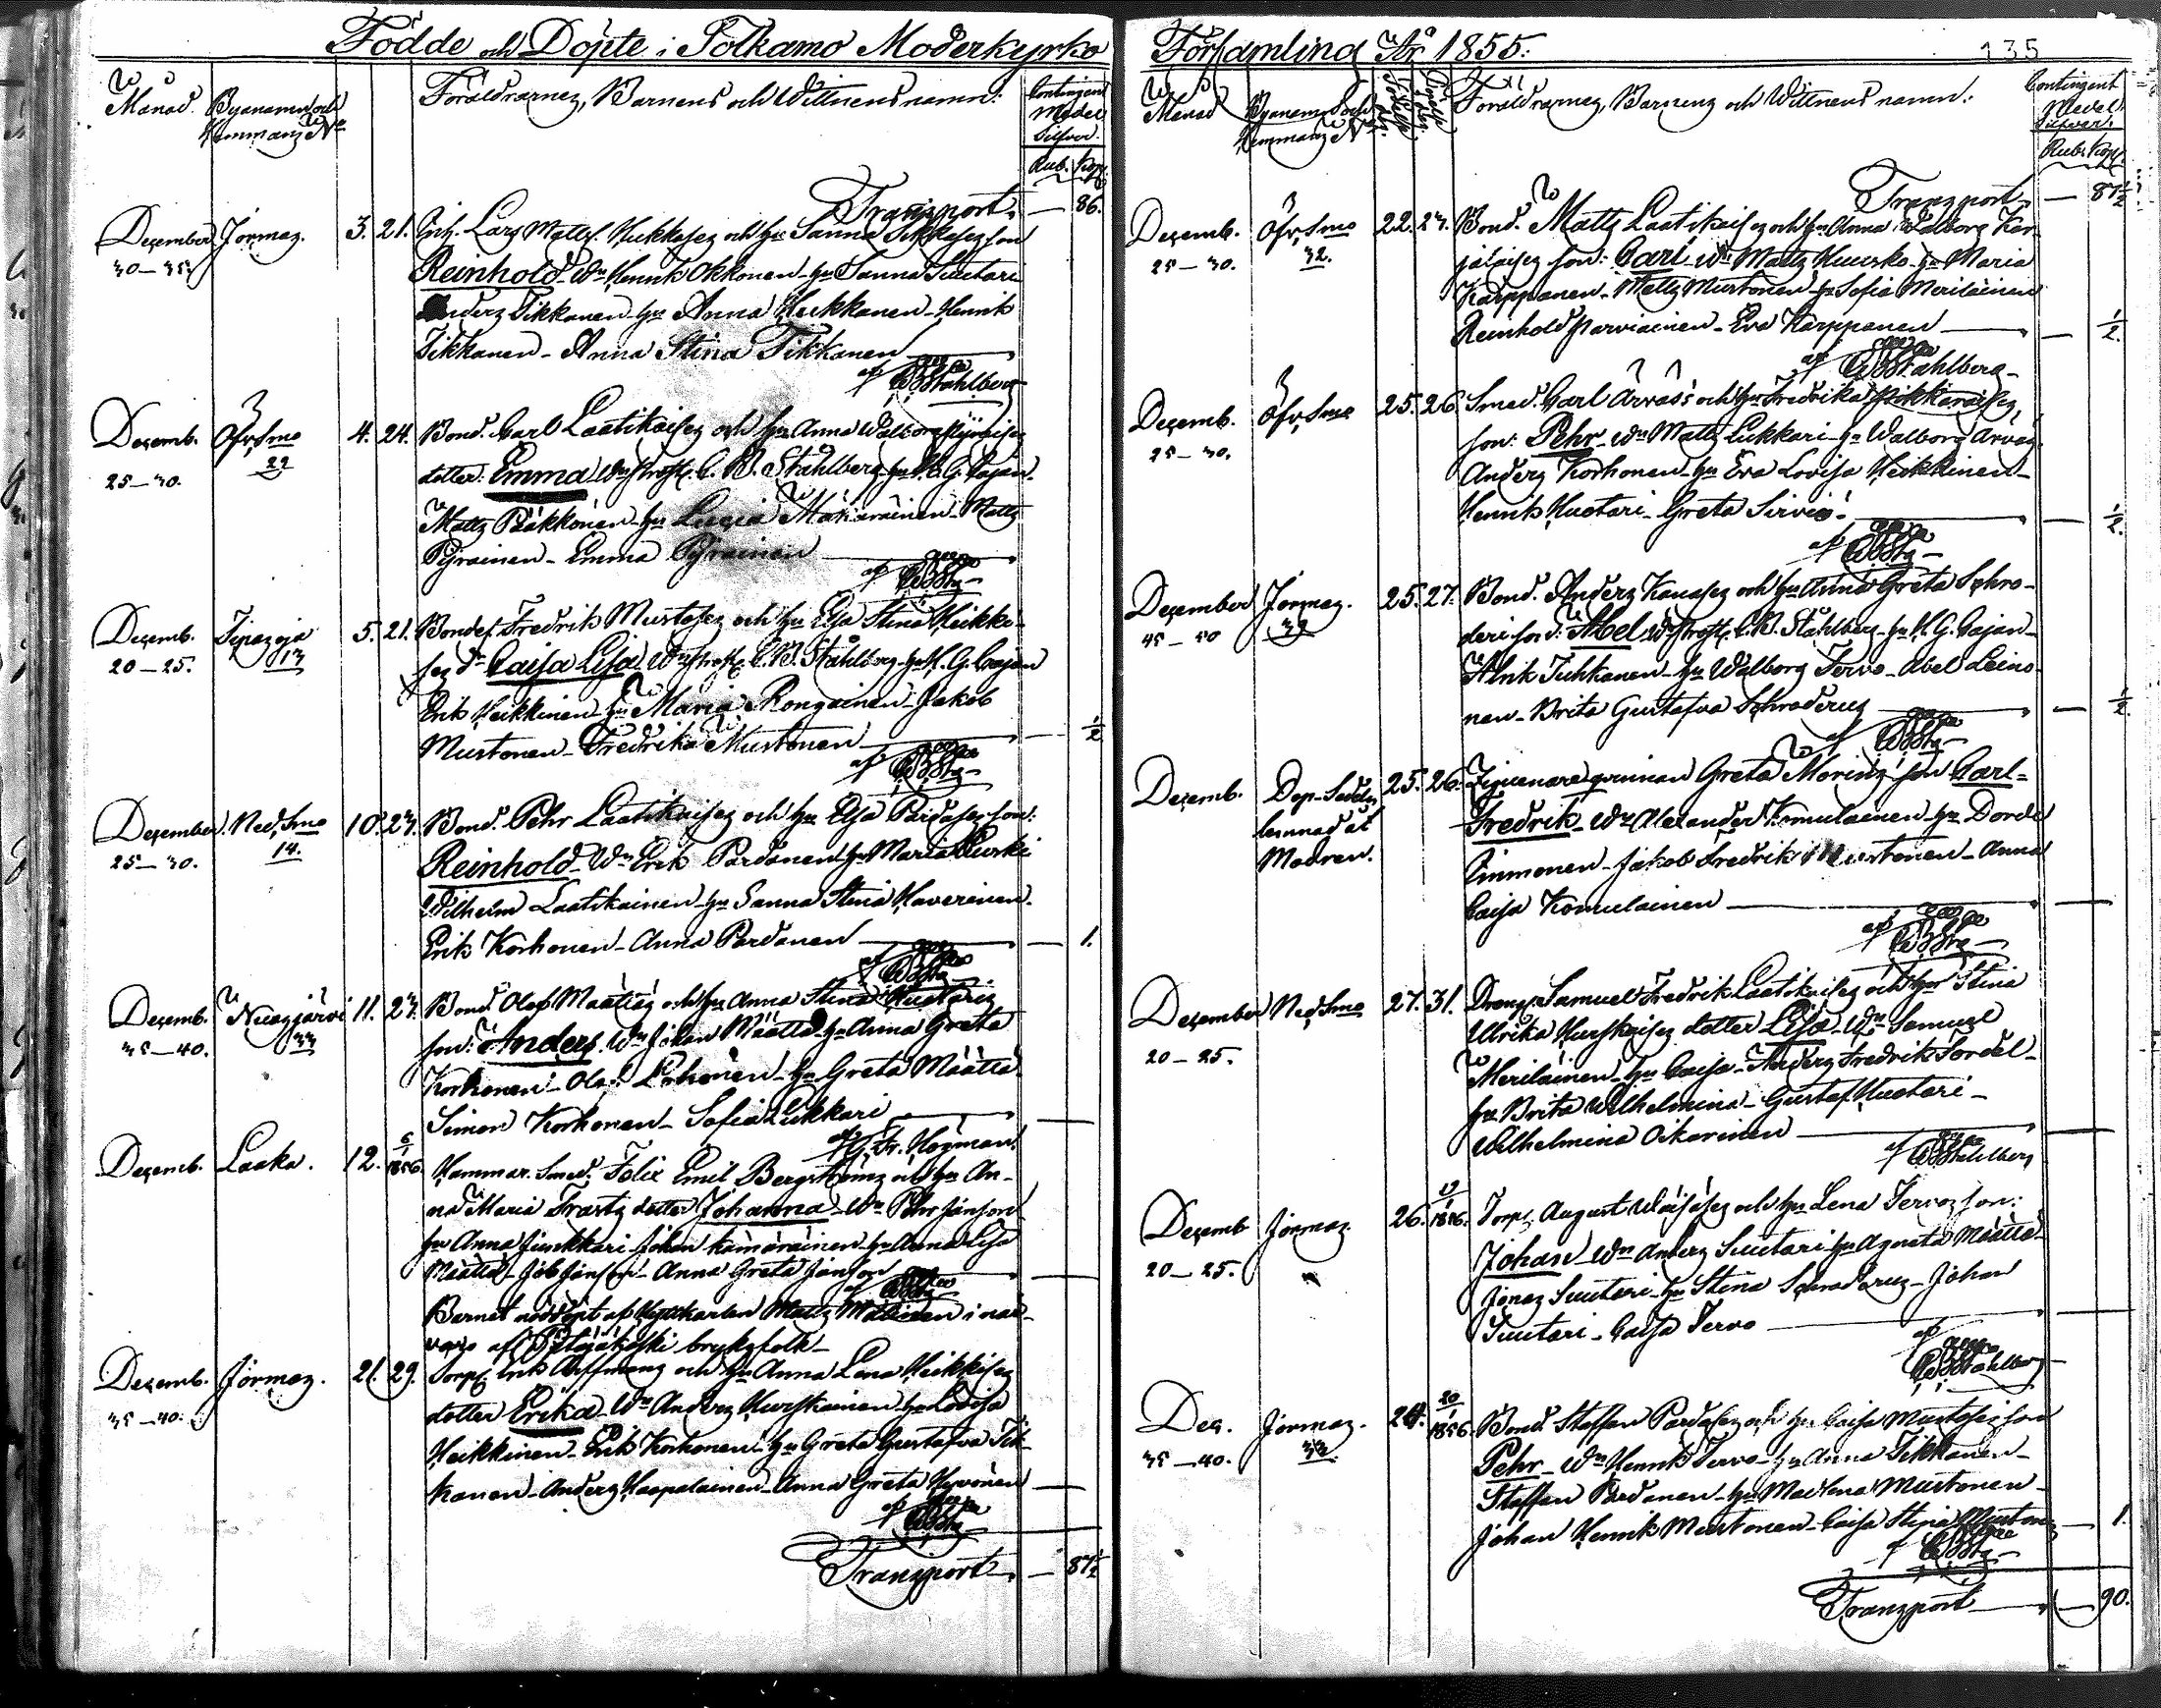 Födde och Döpte i Sotkamo Moderkyrko
Månad. Byanamn och Hemmans No
Föräldrarnes, Barnens och Wittnens namn:
Contingent Medel Silfver.
Rub. Kop.
Transport — 86.
December Jormas. 3. 21. Lars Matts. Heikkises och hu Sanna Tikkases son
30–35. Reinhold Wn Henrik Okkonen – hu Sanna Suutari
Anders Tikkanen – hu Anna Heikkanen – Henrik
Tikkanen – Anna Stina Tikkanen
af CWStahlberg
Decemb. Öfv. Smo 4. 24. Bond. Carl Laatikaises och hu Anna Walborg Pyräises
25–30. 22 dotter: Emma Wn Prost. C. W. Stahlberg hu H. G. Cajan
Matts Pääkkönen – hu Lucia Mäkäräinen – Matts
Pyräinen – Emma Pyräinen
af CWStg
Decemb. Tipasoja 5. 21. Bondes. Fredrik Mustoses och hu Elsa Stina Heikki-
20–25. 13 ses dr Caisa Lisa Wn Prost. C. W. Stahlberg – hu H. G. Cajan
Erik Heikkinen – hu Maria Rongainen – Jakob
Mustonen – Fredrika Mustonen — ½
af CWStg
December Ned. Smo 10. 23. Bond. Pehr Laatikaises och hu Elsa Pardases son:
25–30. 14. Reinhold – Wn Erik Pardanen hu Maria Kurki
Wilhelm Laatikainen – hu Sanna Stina Haverinen.
Erik Korhonen – Anna Pardanen — 1.
af CWStg
Decemb. Nuasjärvi 11. 23. Bond. Olof Määttäs och hu Anna Stina Huotaris
35–40. 33 son: Anders. Wn Johan Määttä – hu Anna Greta
Korhonen – Olof Korhonen – hu Greta Määttä
Simon Korhonen – Sofia Lukkari —
af G. Fr. Högman.
Decemb. Laaka. 12. 6/1 1856. Hammar. Smed. Felix Emil Bergströms och hu An-
na Maria Trasts dotter Johanna – Wn Pehr Janson
hu Anna Junkkari – Johan Kämäräinen – hu Anna Lisa
Määttä – Job Janson – Anna Greta Janson —
af CWStg
Barnet nöddöpt af Hyttkarlen Matts Malinen i när-
varo af Petäjäkoski bruksfolk –
Decemb. Jormas. 21. 29. Torp. Erik Arffmans och hu Anna Lena Heikkises
35–40. dotter Erika – Wn Anders Hurskainen – hu Lovisa
Heikkinen – Erik Korhonen – hu Greta Gustafva Tik-
kanen – Anders Haapalainen – Anna Greta Hyvönen —
af CWStg
Transport — 87½
Församling År 1855: 135
Månad Byanamn och Hemmans No
Föräldrarnes, Barnens och Wittnens namn:
Contingent Medel Silfver.
Rub. Kop.
Transport — 87½
Decemb. Öfv. Smo 22. 23. Bond. Matts Laatikaises och hu Anna Walborg Kar-
25–30. 32. jalaises son: Carl – Wn Matts Huusko – hu Maria
Karppanen – Matts Mustonen – hu Sofia Meriläinen
Reinhold Parviainen – Eva Karppanen — ½.
af CWStahlberg
Decemb. Öfv. Smo 25. 26. Smed. Carl Arvas's och hu Fredrika Pikkaraises,
25–30. son: Pehr – Wn Matts Lukkari – hu Walborg Arvas.
Anders Korhonen – hu Eva Lovisa Heikkinen –
Henrik Huotari – Greta Sirviö — ½.
af CWStg
December Jormas. 25. 27. Bond. Anders Kanases och hu Anna Greta Schro-
45–50 39 deri son: Abel – Wn Prost. C. W. Stahlberg – hu H. G. Cajan –
Alrik Tuhkanen – hu Walborg Tervo – Abel Leino-
nen – Brita Gustafva Schroderus — ½.
af CWStg
Decemb. Dop-Sedeln 25. 26. Zigenare qvinnan Greta Morins' son Carl-
lemnad åt Fredrik – Wn Alexander Komulainen – hu Dorde
Modren. Pimmonen – Jakob Fredrik Mustonen – Anna
Caisa Komulainen —
af CWStg
December Ned. Smo 27. 31. Drengs. Samuel Fredrik Laatikaises och hu Stina
20–25. Ulrika Hurskaises dotter Lisa – Wn Samuel
Meriläinen – hu Caisa – Anders Fredrik Sordel –
hu Brita Wilhelmina – Gustaf Huotari –
Wilhelmina Oikarinen —
af CWStahlberg
Decemb Jormas 26. 19/1 1856. Torp. August Väisäses och hu Lena Tervos son:
20–25. Johan – Wn Anders Suutari – hu Agneta Määttä
Jonas Suutari – hu Stina Schroderus – Johan
Suutari – Caisa Tervo —
af CWStahlberg
Dec. Jormas. 24. 20/1 1856. Bond. Staffan Pardases och hu Caisa Mustoses son
35–40. 33 Pehr – Wn Henrik Tervo – hu Anna Tikkanen –
Staffan Pardanen – hu Madlena Mustonen –
Johan Henrik Mustonen – Caisa Stina Mustonen — 1.
af CWStg
Transport — 90.